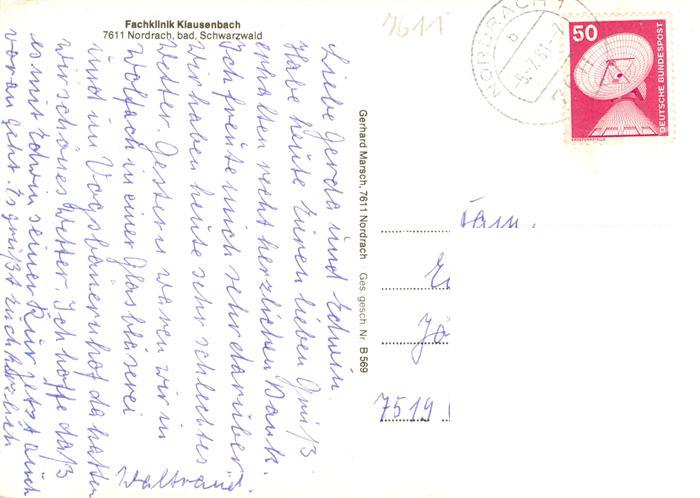 Fachklinik Klausenbach
7611 Nordrach, bad. Schwarzwald
7611
NORDRACH 1
b
-6.-7.81.-
50
DEUTSCHE BUNDESPOST
ERDEFUNKSTELLE
Liebe Gerda und Edwin.
Habe heute Euren lieben Gruß
erhalten recht herzlichen Dank.
Ich freute mich sehr darüber.
Wir haben heute sehr schlechtes
Wetter. Gestern waren wir in
Wolfach in einer Glasbläserei
und im Vogsbauernhof da hatten
wir schönes Wetter. Ich hoffe daß
es mit Edwin seiner Kur jetzt auch
voran geht. Es grüßt Euch herzlich
Waltraud.
Gerhard Marsch, 7611 Nordrach Ges. gesch. Nr. B 569
Fam.
7519